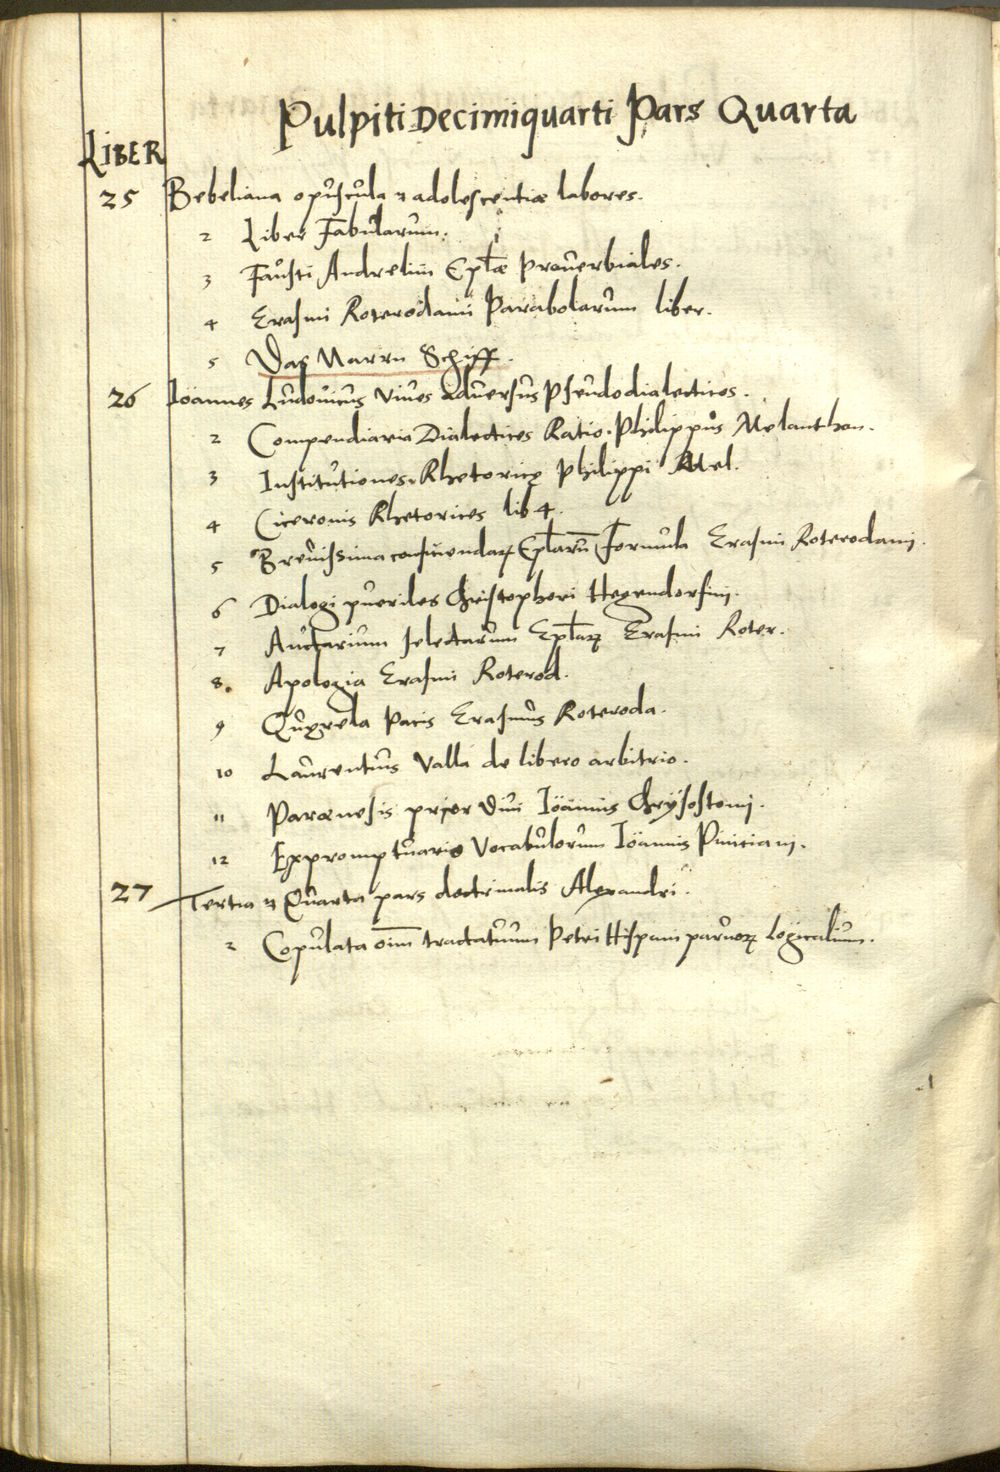 Pulpiti Decimiquarti Pars Quarta
LIBER
25 Bebeliana opuscula & adolescentiæ labores.
2 Liber Fabularum.
3 Fausti Andrelini Ep̄læ Prouerbiales.
4 Erasmi Roterodami Parabolarum liber.
5 Das Narrn Schiff.
26 Ioannes Ludouicus Viues aduersus Pseudodialecticos.
2 Compendiaria Dialectices Ratio. Philippus Melanthon.
3 Institutiones Rhetoricę Philippi Mel.
4 Ciceronis Rhetorices lib 4.
5 Breuissima conficiendaꝝ Ep̄larū formula Erasmi Roterodami.
6 Dialogi pueriles Christophori Hegendorfini.
7 Auctarium selectarum Ep̄laꝝ Erasmi Roter.
8. Apologia Erasmi Roterod.
9 Quęrela Pacis Erasmus Roteroda.
10 Laurentius Valla de libero arbitrio.
11 Parænesis prior Diui Ioannis Chrÿsostomi.
12 Expromptuario Vocabulorum Ioannis Piniciani.
27 Tertia & Quarta pars doctrinalis Alexandri.
2 Copulata oīm tractatuum Petri Hispani paruoꝝ Logicalium.